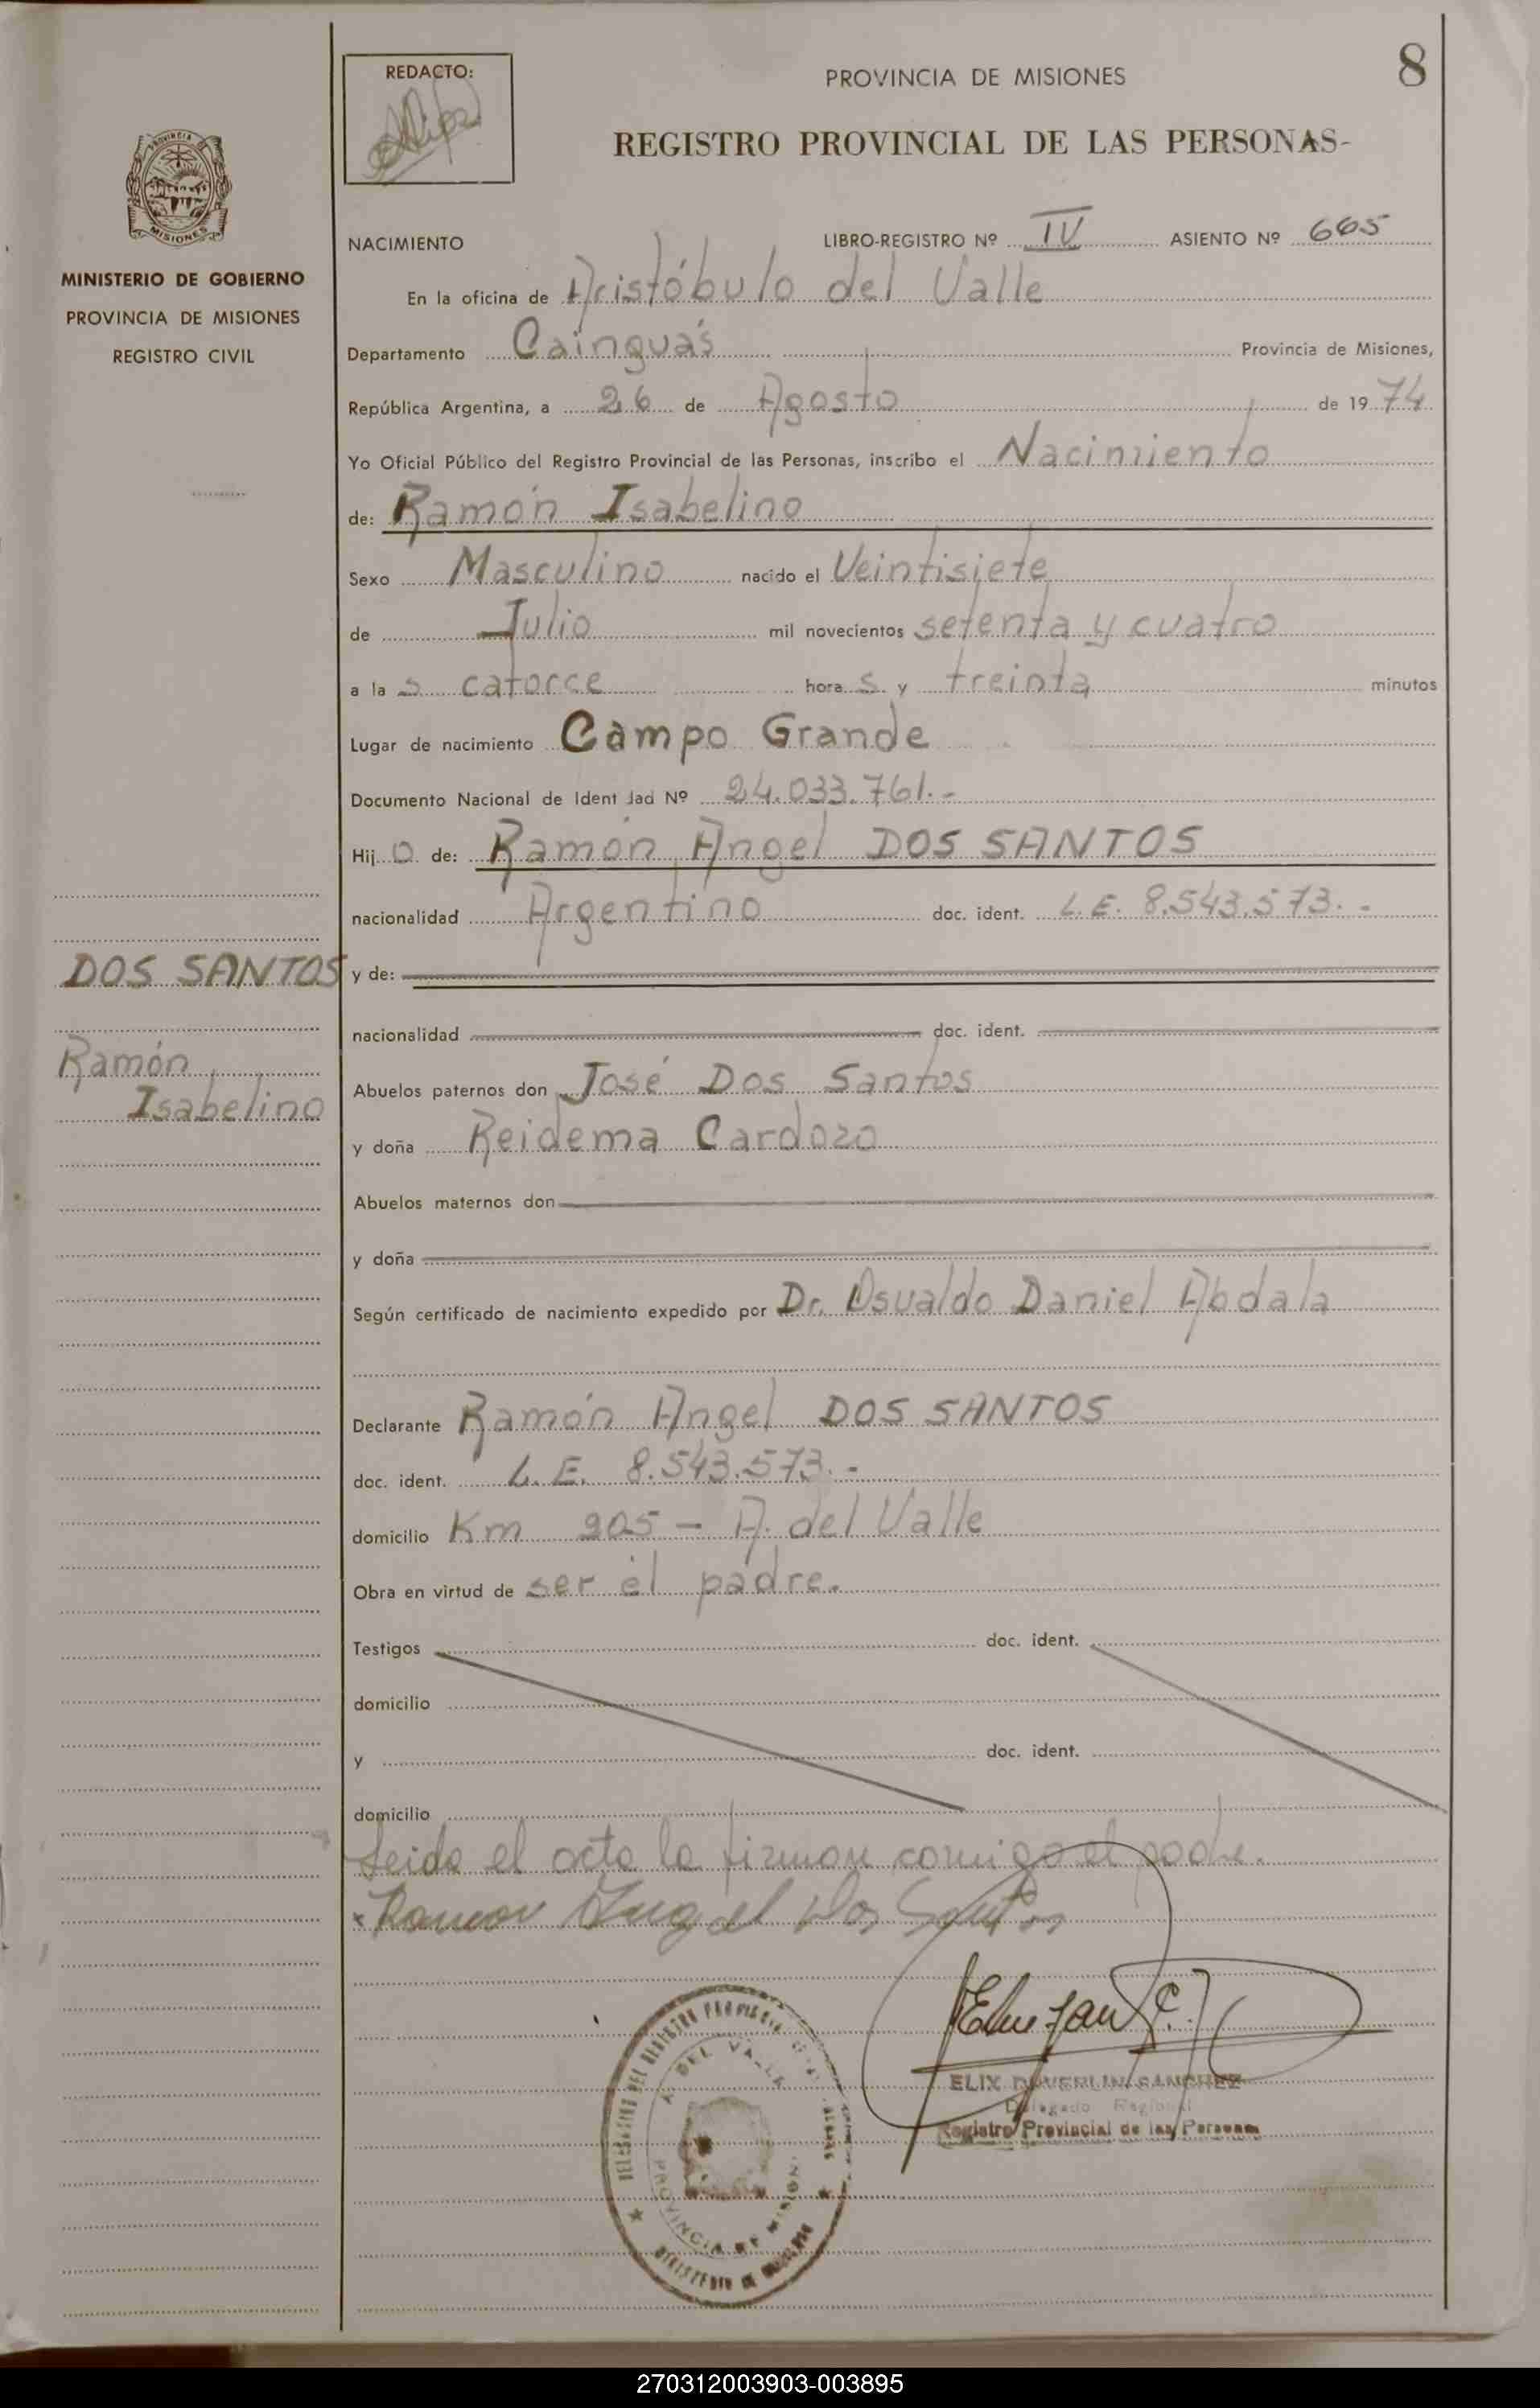 8
REDACTO:
PROVINCIA DE MISIONES
REGISTRO PROVINCIAL DE LAS PERSONAS-
PROVINCIA DE
MISIONES
MINISTERIO DE GOBIERNO
PROVINCIA DE MISIONES
REGISTRO CIVIL
NACIMIENTO LIBRO-REGISTRO Nº IV ASIENTO Nº 665
En la oficina de Aristóbulo del Valle
Departamento Cainguás Provincia de Misiones,
República Argentina, a 26 de Agosto de 1974
Yo Oficial Público del Registro Provincial de las Personas, inscribo el Nacimiento
de: Ramón Isabelino
Sexo Masculino nacido el Veintisiete
de Julio mil novecientos setenta y cuatro
a la s catorce hora s y treinta minutos
Lugar de nacimiento Campo Grande
Documento Nacional de Ident dad Nº 24.033.761.-
Hij o de: Ramón Angel DOS SANTOS
nacionalidad Argentino doc. ident. L.E. 8.543.573.-
DOS SANTOS
y de:
nacionalidad doc. ident.
Ramón
Isabelino
Abuelos paternos don José Dos Santos
y doña Reidema Cardozo
Abuelos maternos don
y doña
Según certificado de nacimiento expedido por Dr. Osvaldo Daniel Abdala
Declarante Ramón Angel DOS SANTOS
doc. ident. L.E. 8.543.573.-
domicilio Km 205 - A. del Valle
Obra en virtud de ser el padre.
Testigos doc. ident.
domicilio
y doc. ident.
domicilio
Leida el acta la firman comigo el padre.
Ramon Angel Dos Santos
ELIX SANCHEZ
Delegado Regional
Registro Provincial de las Personas
DEL REGISTRO PROVINCIAL
A. DEL VALLE
PROVINCIA DE MISIONES
MINISTERIO DE GOBIERNO
270312003903-003895